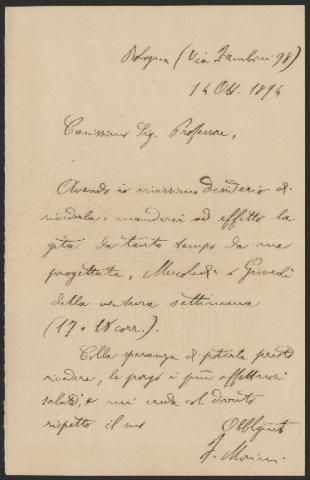 Bologna (Via Zamboni 98)
14 Ott. 1894
Carissimo Sig. Professore,
Avendo io vivissimo desiderio di
rivederla, manderei ad effetto la
gita da tanto tempo da me
progettata, Mercoledì o Giovedì
della ventura settimana
(17 o 18 corr.).
Colla speranza di poterla presto
rivedere, le porgo i più affettuosi
saluti, e mi creda col dovuto
rispetto il suo Obblgmo
F. Morini